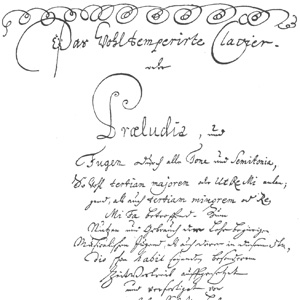 Das Wohltemperirte Clavier.
oder
Præludia, und
Fugen durch alle Tone und Semitonia,
So wohl tertiam majorem oder Ut Re Mi anlan-
gend, als auch tertiam minorem oder Re
Mi Fa betreffend. Zum
Nutzen und Gebrauch der Lehrbegierigen
Musicalischen Jugend, als auch derer in diesem studio
schon habil seyenden besonderem
Zeitvertreib auffgesetzet
und verfertiget von